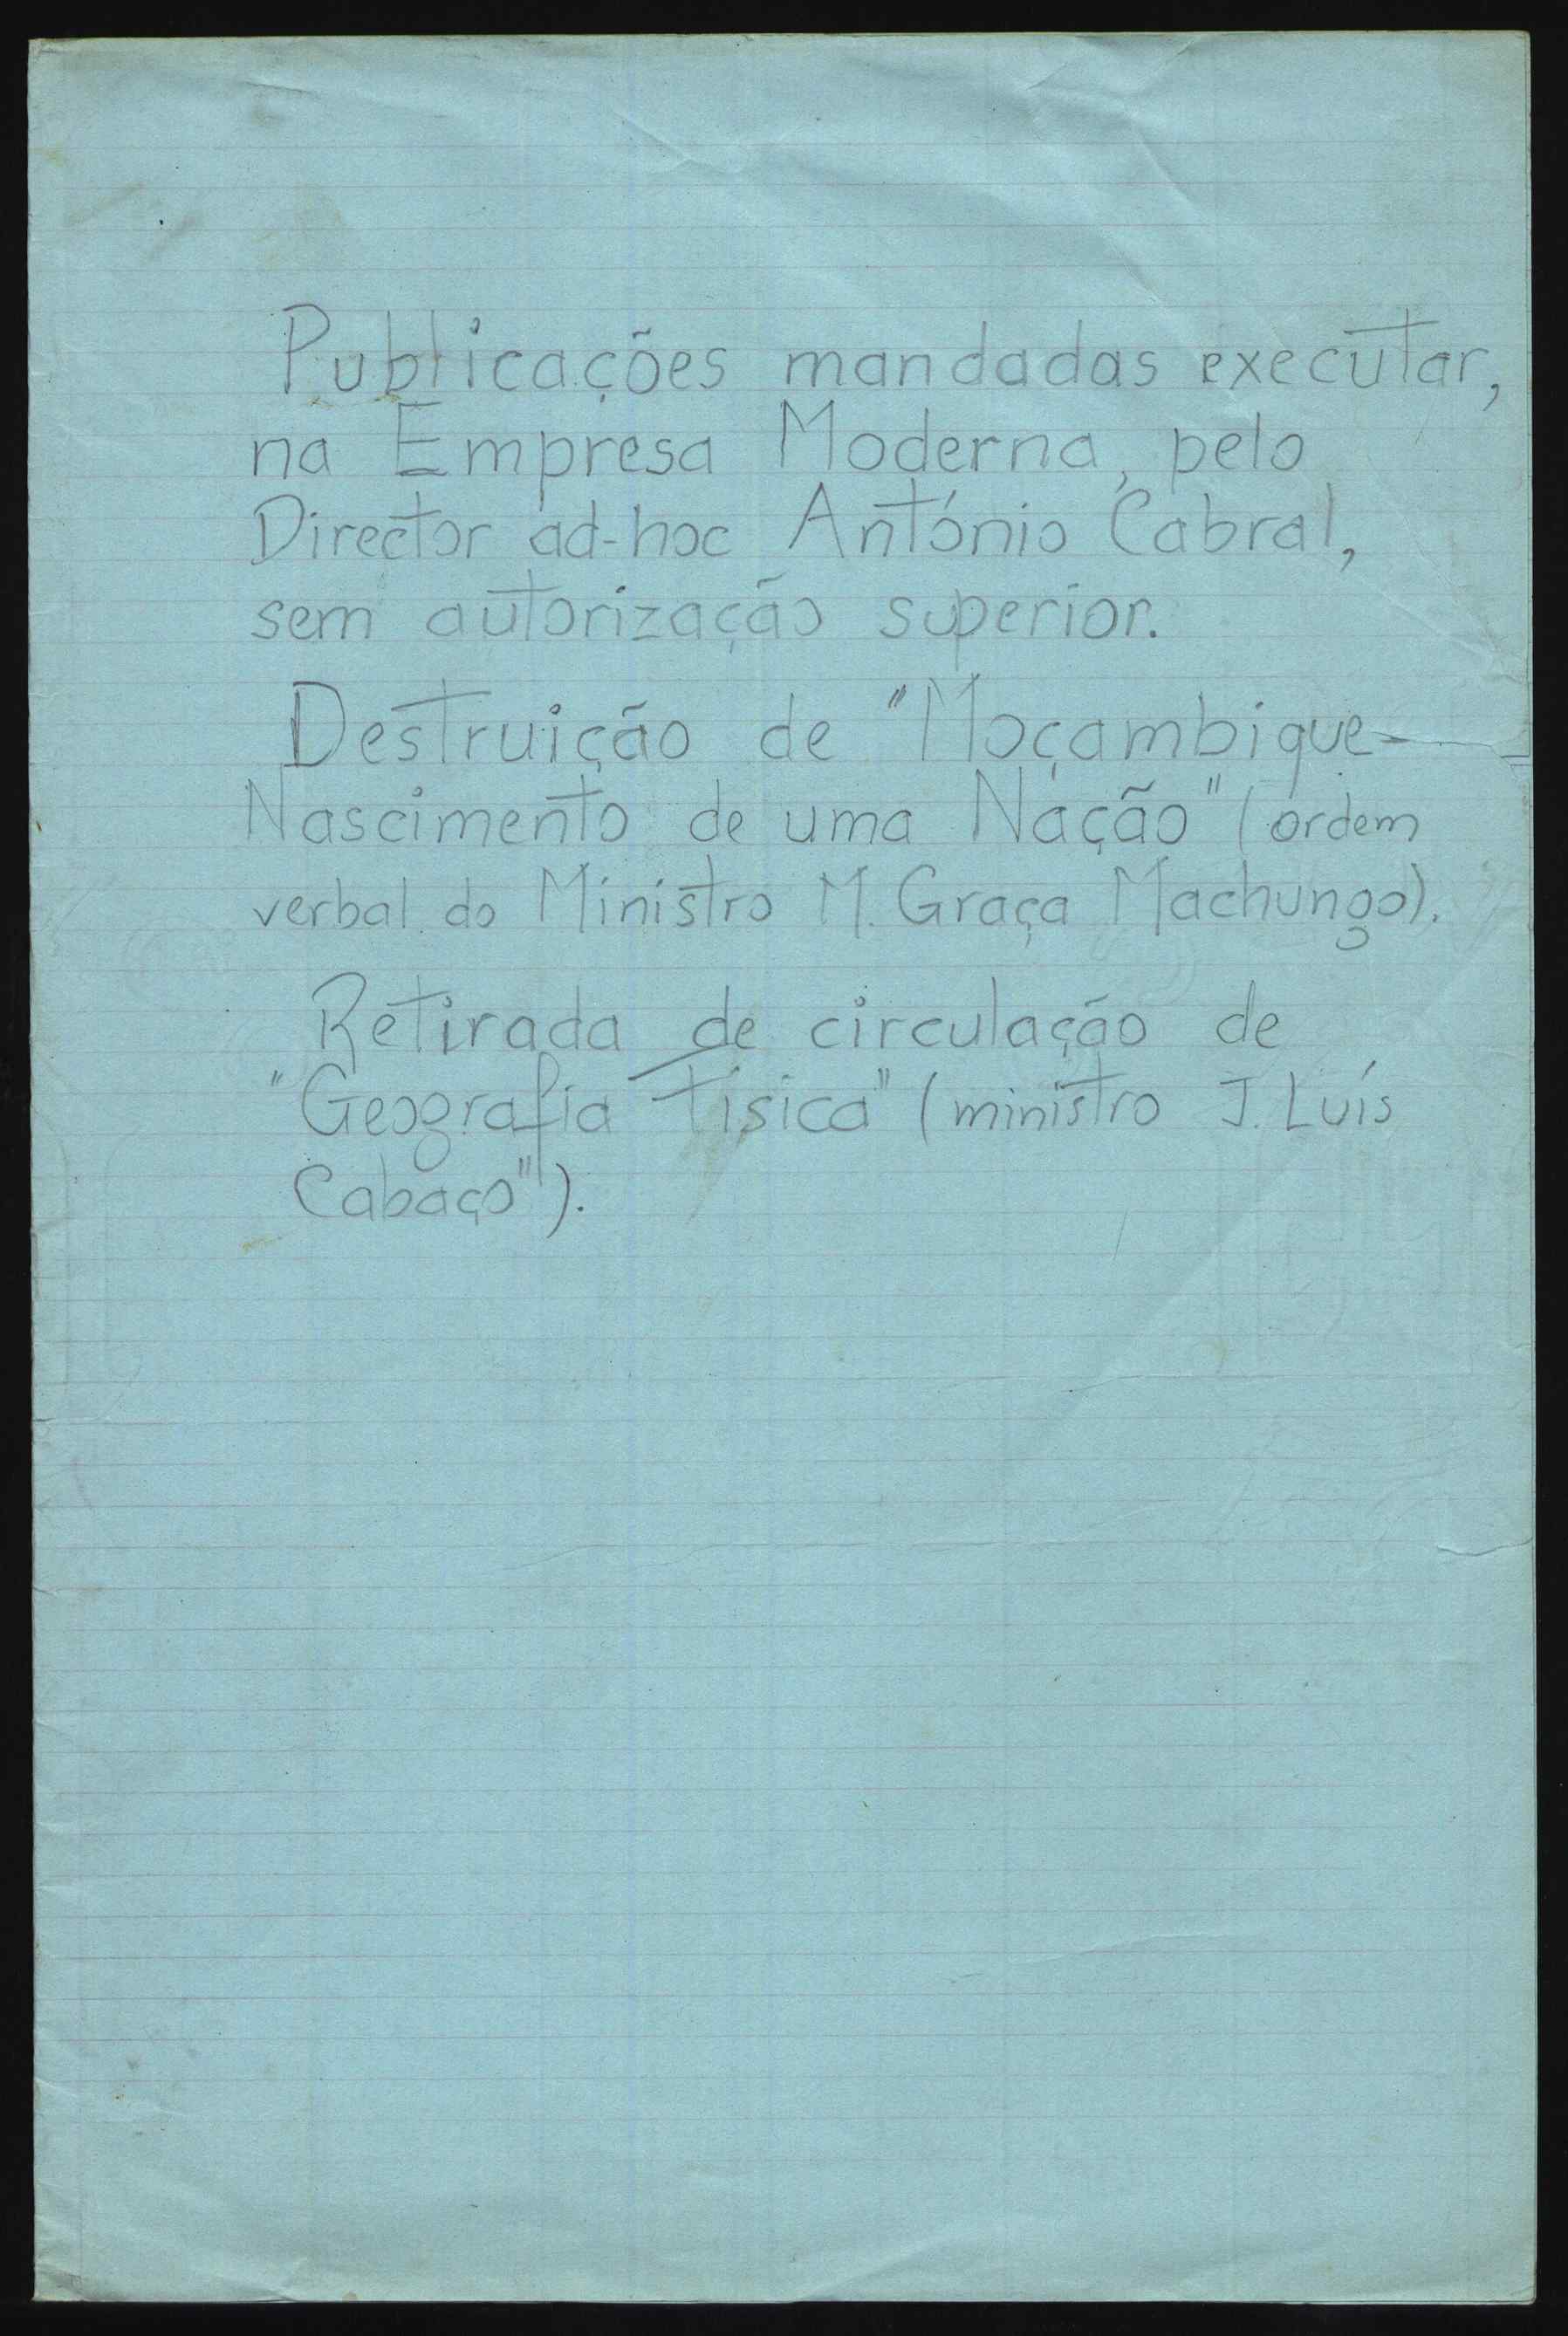 Publicações mandadas executar,
na Empresa Moderna, pelo
Director ad-hoc António Cabral,
sem autorização superior.
Destruição de "Moçambique-
Nascimento de uma Nação" (ordem
verbal do Ministro M. Graça Machungo).
Retirada de circulação de
"Geografia Física" (ministro J. Luís
Cabaço").